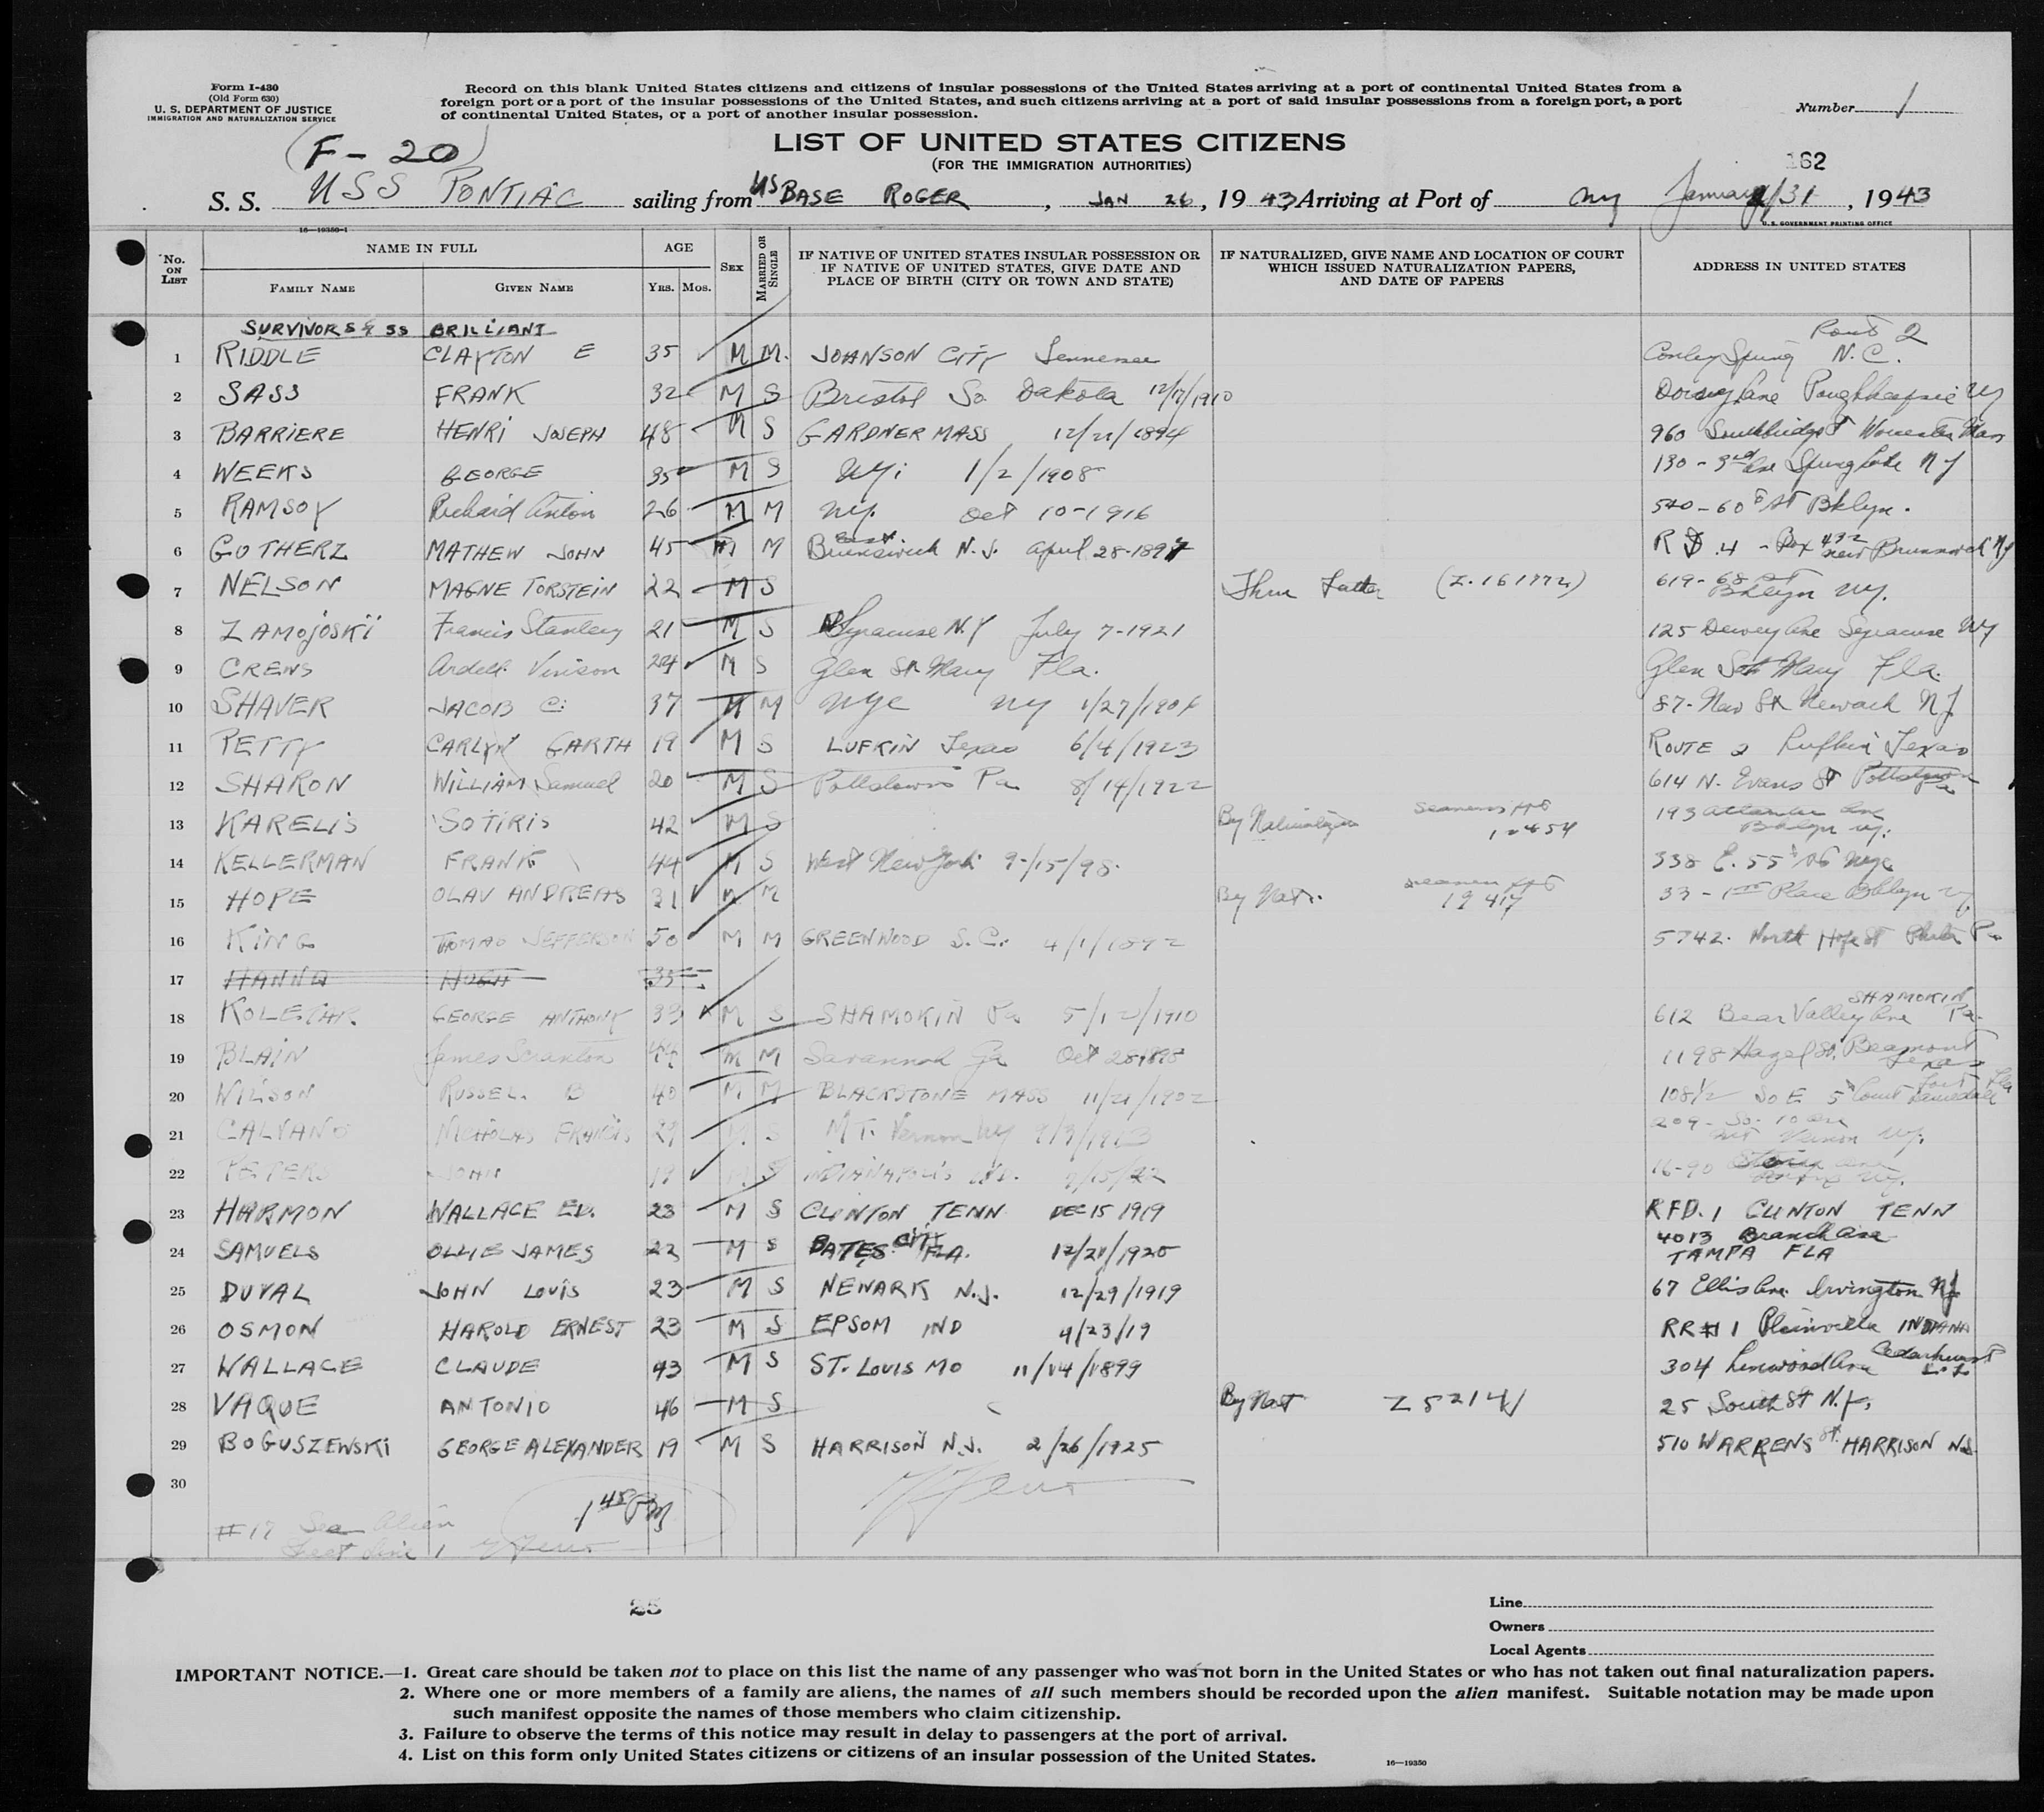 Form I-430
(Old Form 630)
U. S. DEPARTMENT OF JUSTICE
IMMIGRATION AND NATURALIZATION SERVICE
Record on this blank United States citizens and citizens of insular possessions of the United States arriving at a port of continental United States from a
foreign port or a port of the insular possessions of the United States, and such citizens arriving at a port of said insular possessions from a foreign port, a port
of continental United States, or a port of another insular possession.
Number 1
(F-20)
LIST OF UNITED STATES CITIZENS
(FOR THE IMMIGRATION AUTHORITIES)
162
S. S. USS PONTIAC sailing from US BASE ROGER, JAN 26, 1943, Arriving at Port of NY January 31, 1943
16—19350-1
U. S. GOVERNMENT PRINTING OFFICE
No. ON LIST
NAME IN FULL
FAMILY NAME
GIVEN NAME
AGE
YRS.
MOS.
SEX
MARRIED OR SINGLE
IF NATIVE OF UNITED STATES INSULAR POSSESSION OR
IF NATIVE OF UNITED STATES, GIVE DATE AND
PLACE OF BIRTH (CITY OR TOWN AND STATE)
IF NATURALIZED, GIVE NAME AND LOCATION OF COURT
WHICH ISSUED NATURALIZATION PAPERS,
AND DATE OF PAPERS
ADDRESS IN UNITED STATES
SURVIVORS SS BRILLIANT
1 RIDDLE CLAYTON E 35 M M. JOHNSON CITY Tennessee Rout 2 Conley Spring N.C.
2 SASS FRANK 32 M S Bristol So Dakota 12/17/1910 Lane Poughkeepsie NY
3 BARRIERE HENRI JOSEPH 48 M S GARDNER MASS 12/21/1894 960 Southbridge St Worcester Mass
4 WEEKS GEORGE 35 M S NY 1/2/1908 130-3rd Ave Spring Lake NJ
5 RAMSOY Richard Anton 26 M M NY. Oct 10-1916 540-60th St Bklyn.
6 GUTHERZ MATHEW JOHN 45 M M East Brunswick N.J. April 28-1897 R D .4 - Box 432 New Brunswick NJ
7 NELSON MAGNE TORSTEIN 22 M S Thru Father (Z.161772) 619-68 St Bklyn NY.
8 ZAMOJOSKI Francis Stanley 21 M S Syracuse N.Y July 7-1921 125 Dewey Ave Syracuse NY
9 CREWS Ardell Vinison 24 M S Glen St Mary Fla. Glen St Mary Fla.
10 SHAVER JACOB C. 37 M M NYC NY 1/27/190 87-New St Newark NJ
11 PETTY CARLYN GARTH 19 M S LUFKIN Texas 6/4/1923 ROUTE 2 Lufkin Texas
12 SHARON WILLIAM Samuel 20 M S Pottstown Pa 8/14/1922 614 N. Evans St Pottstown Pa
13 KARELIS SOTIRIS 42 M S By Naturalization Seamens 193 Atlantic Ave Bklyn NY.
14 KELLERMAN FRANK 44 M S West New York 9-/15/98. 338 E. 55th St NYC
15 HOPE OLAV ANDREAS 31 M M By Nat. Seamen 33-1st Place Bklyn NY
16 KING THOMAS JEFFERSON 50 M M GREENWOOD S.C. 4/1/1892 5742. North Hope St Phila Pa
17 HANNA HUGH 35
18 GEORGE ANTHONY 33 M S SHAMOKIN Pa 5/12/1910 612 Bear Valley Ave SHAMOKIN Pa.
19 BLAIN James Scranton 44 M M Savannah Ga Oct 28, 1898 1198 Hazel St, Beamont Texas
20 WILSON RUSSEL B 40 M M BLACKSTONE MASS 11/21/1902 108½ So E 5th Court Fort Lauderdale Fla
21 CALVANO NICHOLAS FRANCIS 29 M. S MT. Vernon NY 9/3/1913 209-So. 10 Ave Mt Vernon NY.
22 PETERS JOHN 19 M S INDIANAPOLIS IND. /15/22 16-90 Ave NY.
23 HARMON WALLACE ED. 23 M S CLINTON TENN DEC 15 1919 RFD. 1 CLINTON TENN
24 SAMUELS OLLIE JAMES 22 M S BATES CITY FLA. 12/21/1920 4013 Branch Ave TAMPA FLA
25 DUVAL JOHN LOUIS 23 M S NEWARK N.J. 12/29/1919 67 Ellis Ave. Irvington NJ
26 OSMON HAROLD ERNEST 23 M S EPSOM IND 4/23/19 RR#1 Plainville INDIANA
27 WALLACE CLAUDE 43 M S ST. LOUIS MO 11/14/1899 304 Linwood Ave Cedarhurst L.I.
28 VAQUE ANTONIO 46 M S By Nat 25 South St N.Y.
29 BOGUSZEWSKI GEORGE ALEXANDER 19 M S HARRISON N.J. 2/26/1925 510 WARREN ST. HARRISON N.J.
30
1 45 PM
#17 See Alien
Sheet Line 1
25
Line
Owners
Local Agents
IMPORTANT NOTICE.—1. Great care should be taken not to place on this list the name of any passenger who was not born in the United States or who has not taken out final naturalization papers.
2. Where one or more members of a family are aliens, the names of all such members should be recorded upon the alien manifest. Suitable notation may be made upon
such manifest opposite the names of those members who claim citizenship.
3. Failure to observe the terms of this notice may result in delay to passengers at the port of arrival.
4. List on this form only United States citizens or citizens of an insular possession of the United States.
16—19350